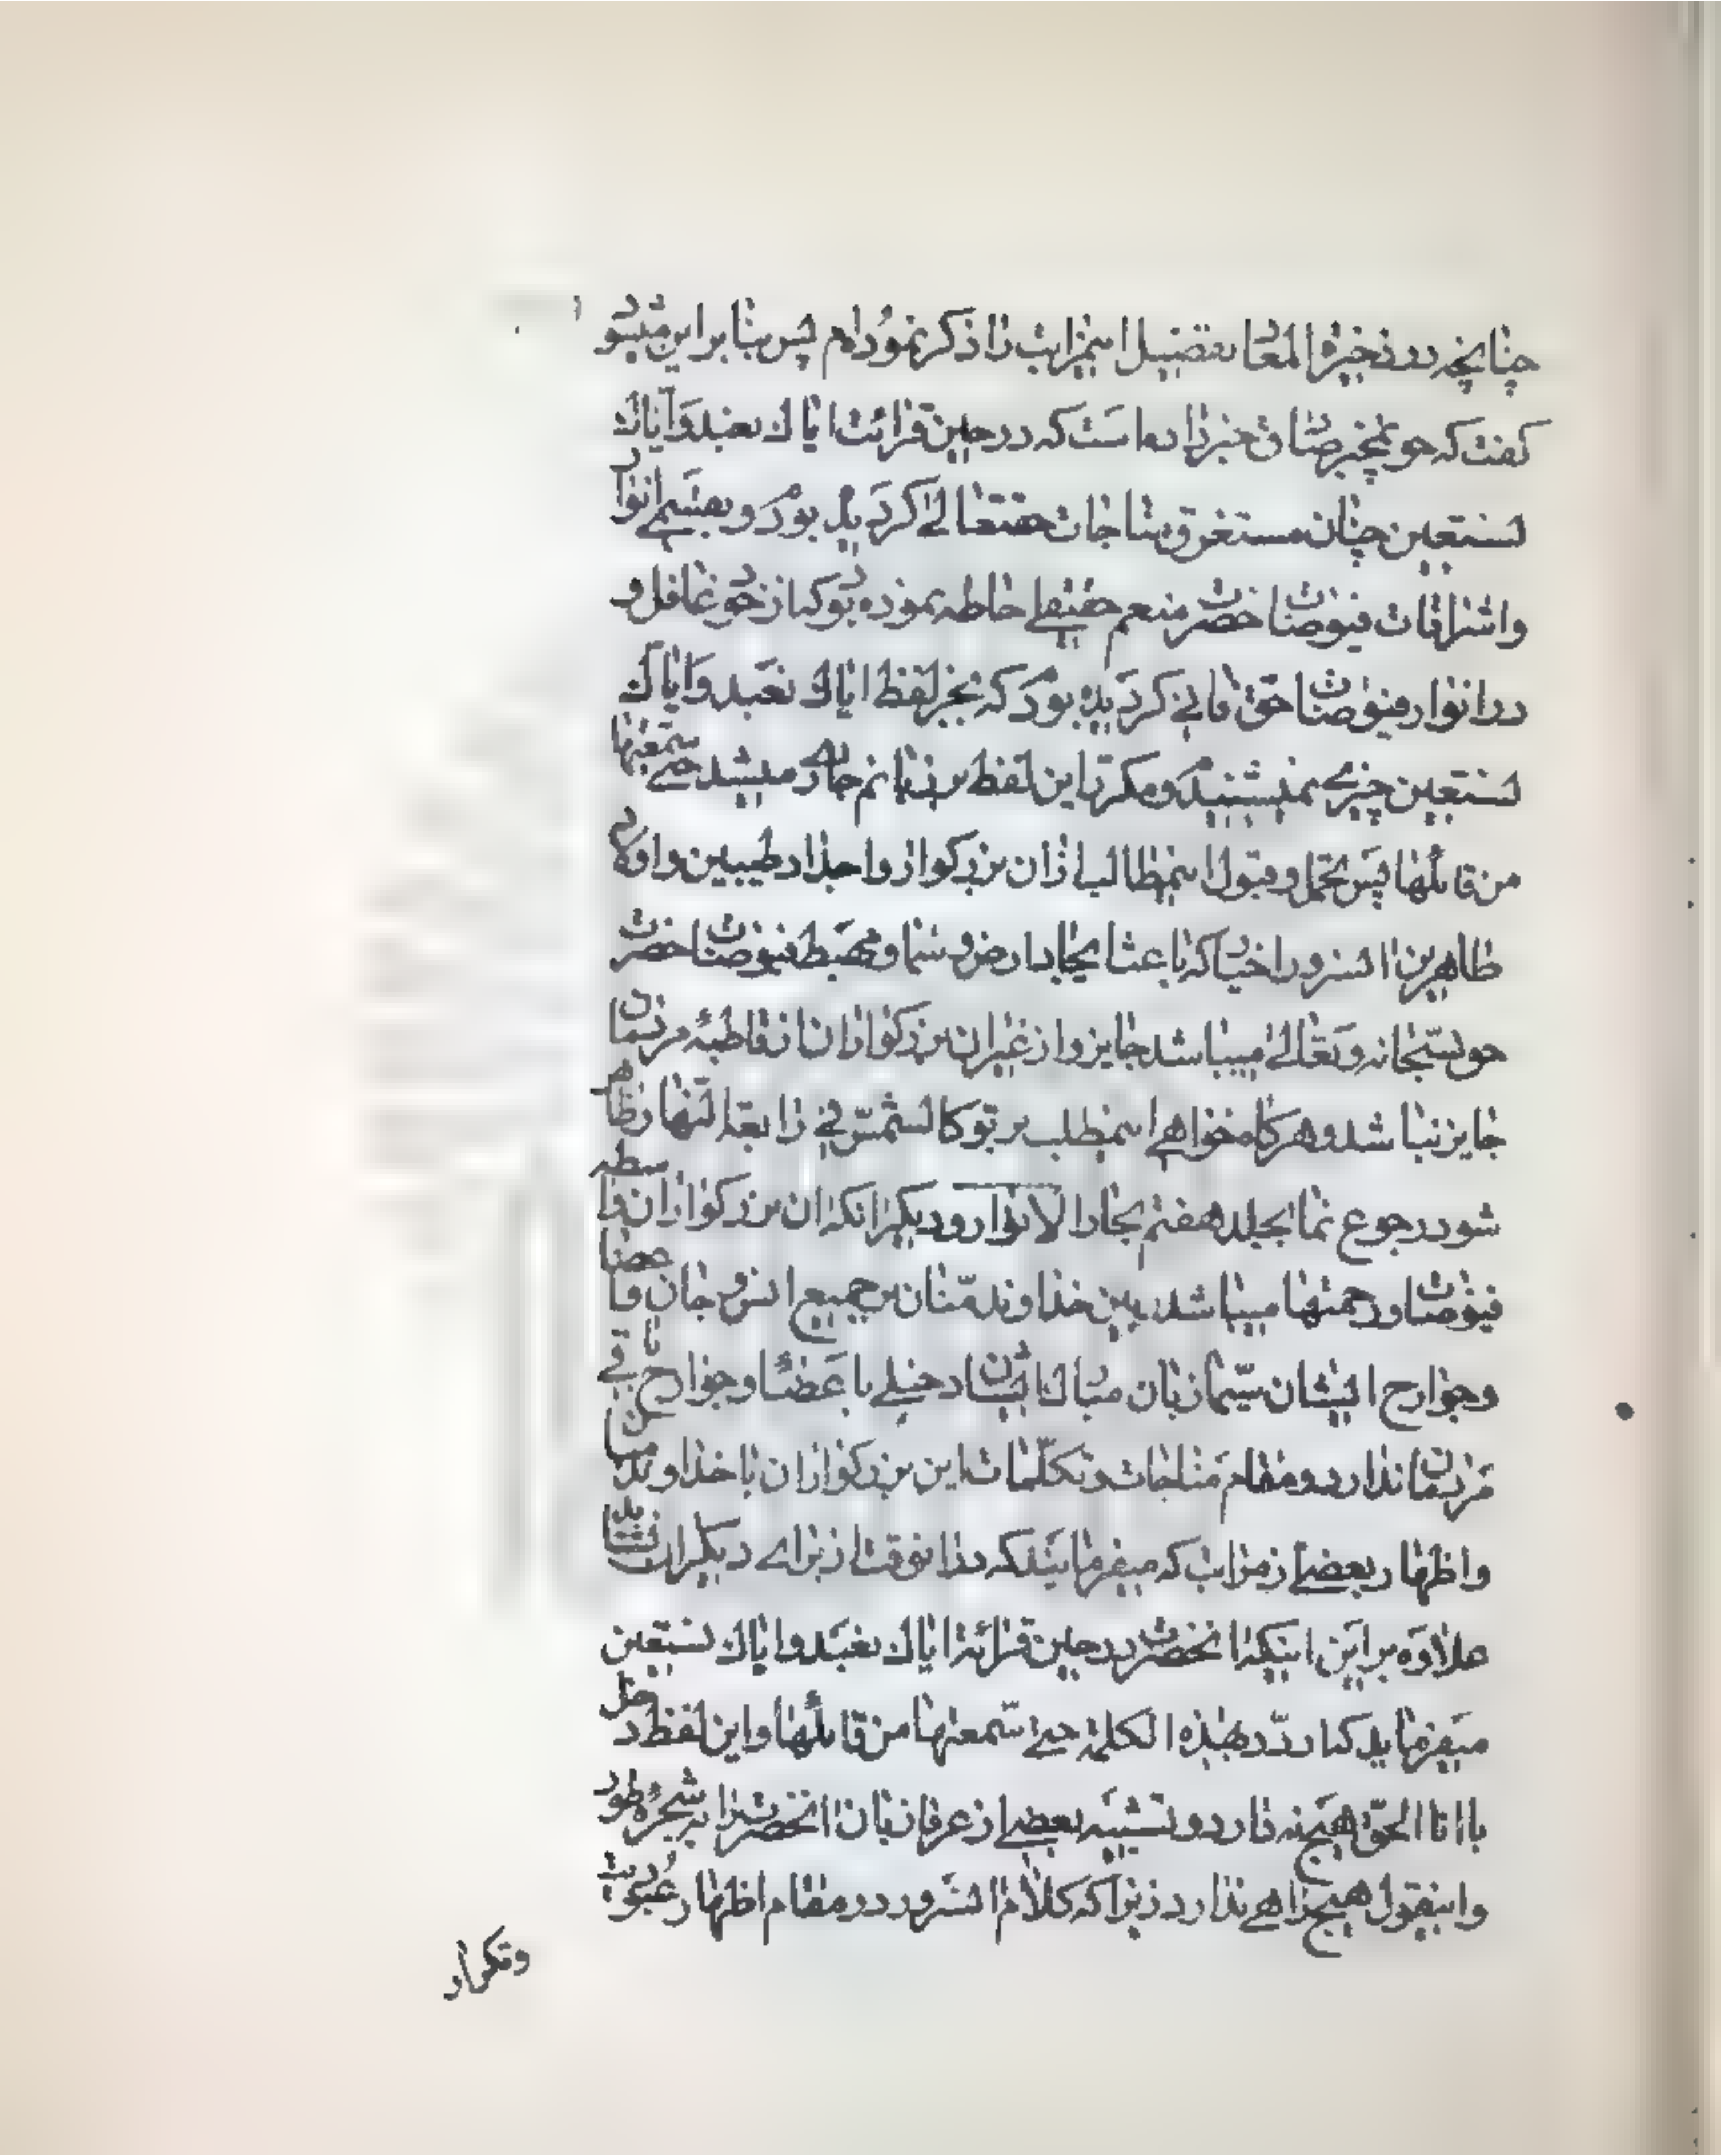 چنانچه در ذخیرة المعاد بتفضیل اینمراتب را ذکر نموده‌ام پس بنا بر این میتوٰ
گفت که چون مخبر صادق خبر داده است که در حین قرائت ایاك نعبد وایاك
نستعین چنان مستغرق مناجات حقتعالی گردیده بود و بقسمی انوار
واشراقات فیوضات حضرت منعم حقیقی احاطه نموده بود که از خود غافل و
در انوار فیوضات حق فانی گردیده بود که بجز لفظ ایاك نعبد وایاك
نستعین چیزی نمیشنید و مکرر این لفظ بر زبانم جاری میشد حتی سمعتها
من قائلها پس تحمل وقبول اینمطالب از آن بزرگوار و اجداد طیبین واولاد
طاهرین آنسرور اخیار که باعث ایجاد ارض و سما ومهبط فیوضات حضرت
حق سبحانه وتعالی میباشد جایز و از غیر ان بزرگواران از قاطبهٔ مردمان
جایز نباشد و هرگاه خواهی اینمطلب بر تو کالشمس فی رابعة النهار ظاهر
شود رجوع نما بجلد هفتم بحار الانوار و دیگر آنکه ان بزرگواران واسطه
فیوضات و رحمتها میباشد بین خداوند منان بر جمیع انس و جان واعضا
وجوارح ایشان سیّما زبان مبارك ایشان دخلی با عضا وجوارح باقی
مردمان ندارد و مقام مناجات وتکلمات این بزرگواران با خداوند
واظهار بعضی از مراتب که میفرمایند که در انوقت از برای دیگران نشاید
علاوه بر این اینکه انحضرت در حین قرائة ایاك نعبد وایاك نستعین
میفرماید که اردّد هذه الکلمة حتی سمعتها من قائلها واین لفظ دخل
با انا الحق هیچ ندارد و تشبیه بعضی از عرفا زبان انحضرت را به شجرهٔ طور
واینقول هیچ راهی ندارد زیرا که کلام انسرور در مقام اظهار عبودیت
وتکرار